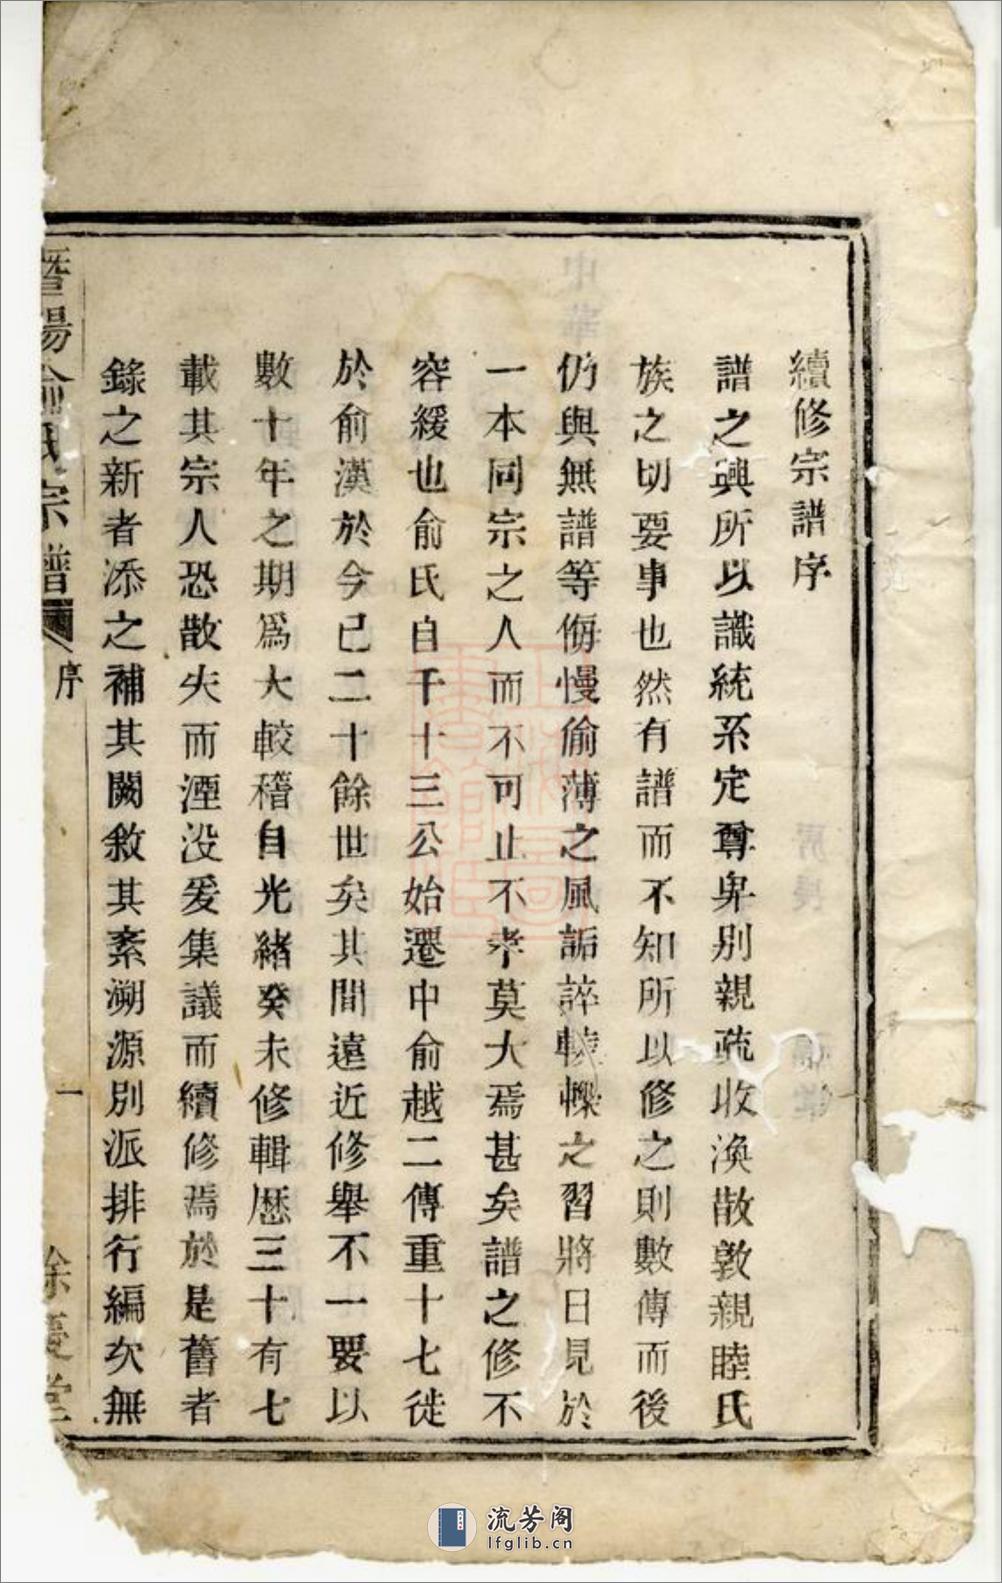 續修宗譜序
譜之興所以識統系定尊卑別親疏收渙散敦親睦氏
族之切要事也然有譜而不知所以修之則數傳而後
仍與無譜等侮慢偷薄之風詬誶轇轕之習將日見於
一本同宗之人而不可止不孝莫大焉甚矣譜之修不
容緩也俞氏自千十三公始遷中俞越二傳重十七徙
於俞漢於今已二十餘世矣其間遠近修舉不一要以
數十年之期爲大較稽自光緒癸未修輯歷三十有七
載其宗人恐散失而湮没爰集議而續修焉於是舊者
錄之新者添之補其闕敘其紊溯源別派排行編次無
暨陽俞氏宗譜
序
一
餘慶堂
流芳阁
lfglib.cn